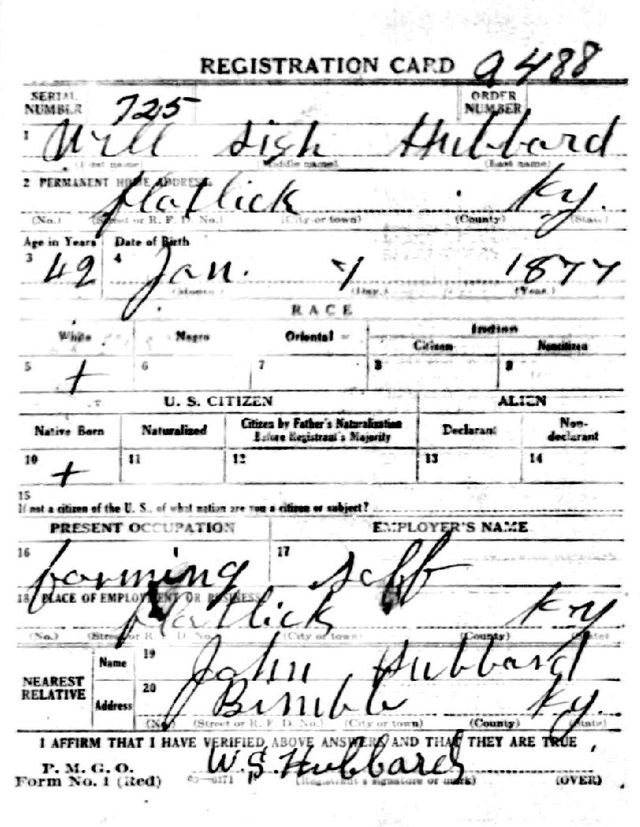 REGISTRATION CARD a 488
SERIAL NUMBER 725 ORDER NUMBER
1 Will Sigh Hubbard
(First name) (Middle name) (Last name)
2 PERMANENT HOME ADDRESS:
Flatlick Ky.
(No.) (Street or R. F. D. No.) (City or town) (County) (State)
Age in Years Date of Birth
3 42 4 Jan. 1877
(Month.) (Day.) (Year.)
RACE
White Negro Oriental Indian
Citizen Noncitizen
5 + 6 7 8 9
U. S. CITIZEN ALIEN
Native Born Naturalized Citizen by Father's Naturalization Before Registrant's Majority Declarant Non-declarant
10 + 11 12 13 14
15
If not a citizen of the U. S., of what nation are you a citizen or subject?
PRESENT OCCUPATION EMPLOYER'S NAME
16 farming 17 Self
18 PLACE OF EMPLOYMENT OR BUSINESS:
Flatlick Ky
(No.) (Street or R. F. D. No.) (City or town) (County) (State)
NEAREST RELATIVE Name 19 John Hubbard
Address 20 Bimble Ky.
(No.) (Street or R. F. D. No.) (City or town) (County) (State)
I AFFIRM THAT I HAVE VERIFIED ABOVE ANSWERS AND THAT THEY ARE TRUE
P. M. G. O.
W.S. Hubbard
Form No. 1 (Red) (Registrant's signature or mark) (OVER)